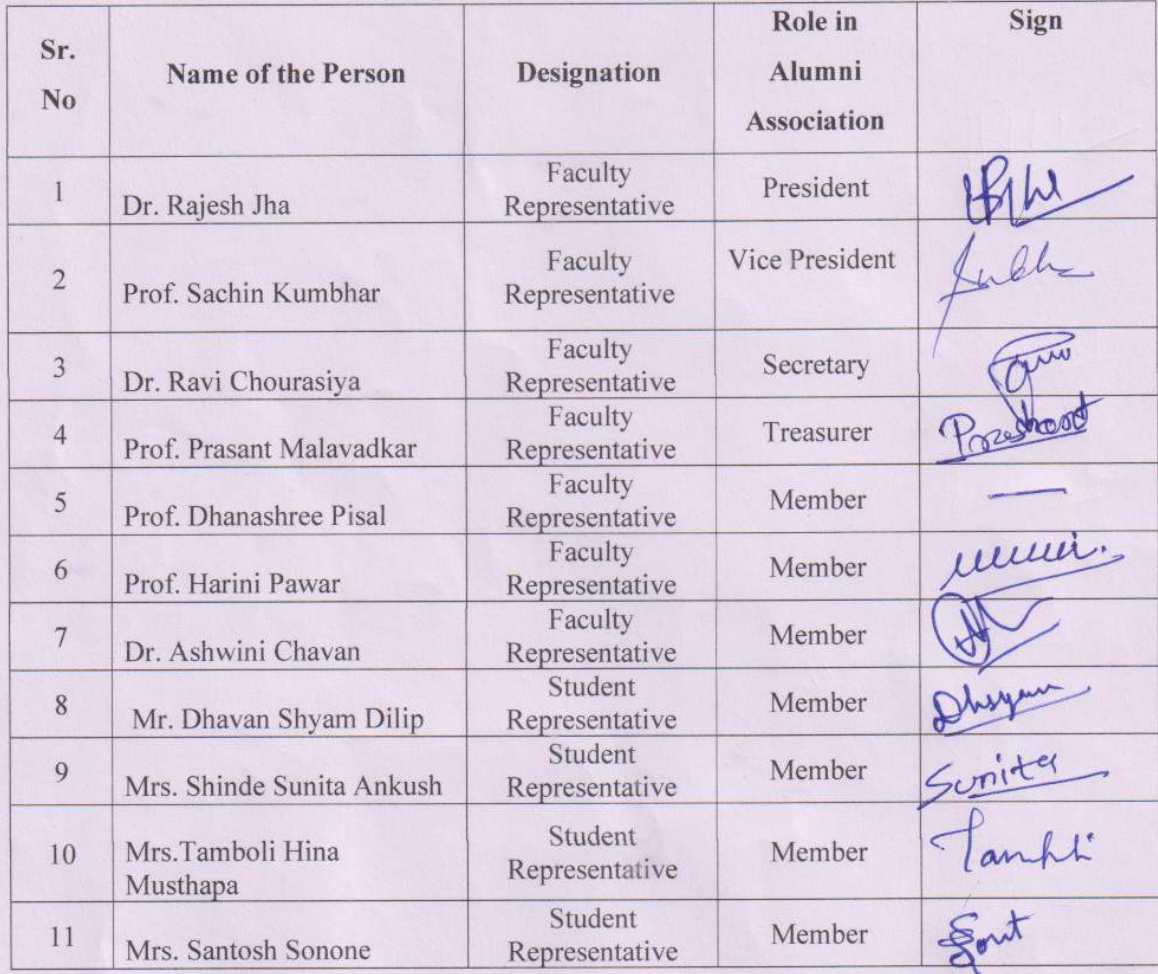 Sr. No | Name of the Person | Designation | Role in Alumni Association | Sign
1 | Dr. Rajesh Jha | Faculty Representative | President |
2 | Prof. Sachin Kumbhar | Faculty Representative | Vice President |
3 | Dr. Ravi Chourasiya | Faculty Representative | Secretary |
4 | Prof. Prasant Malavadkar | Faculty Representative | Treasurer |
5 | Prof. Dhanashree Pisal | Faculty Representative | Member | —
6 | Prof. Harini Pawar | Faculty Representative | Member |
7 | Dr. Ashwini Chavan | Faculty Representative | Member |
8 | Mr. Dhavan Shyam Dilip | Student Representative | Member | Dhsyam
9 | Mrs. Shinde Sunita Ankush | Student Representative | Member | Sunita
10 | Mrs.Tamboli Hina Musthapa | Student Representative | Member |
11 | Mrs. Santosh Sonone | Student Representative | Member |